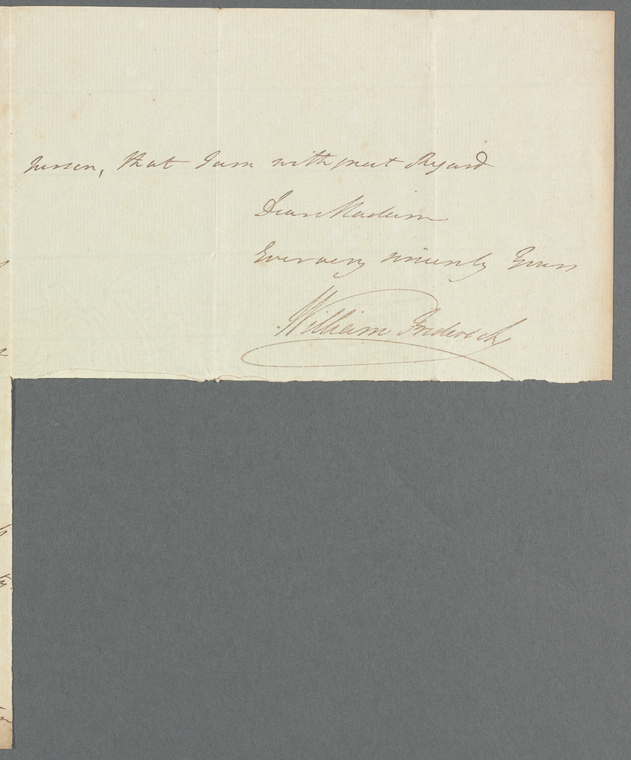 that I am with great Regard
Dear Madam
Ever very sincerely Yours
William Frederick